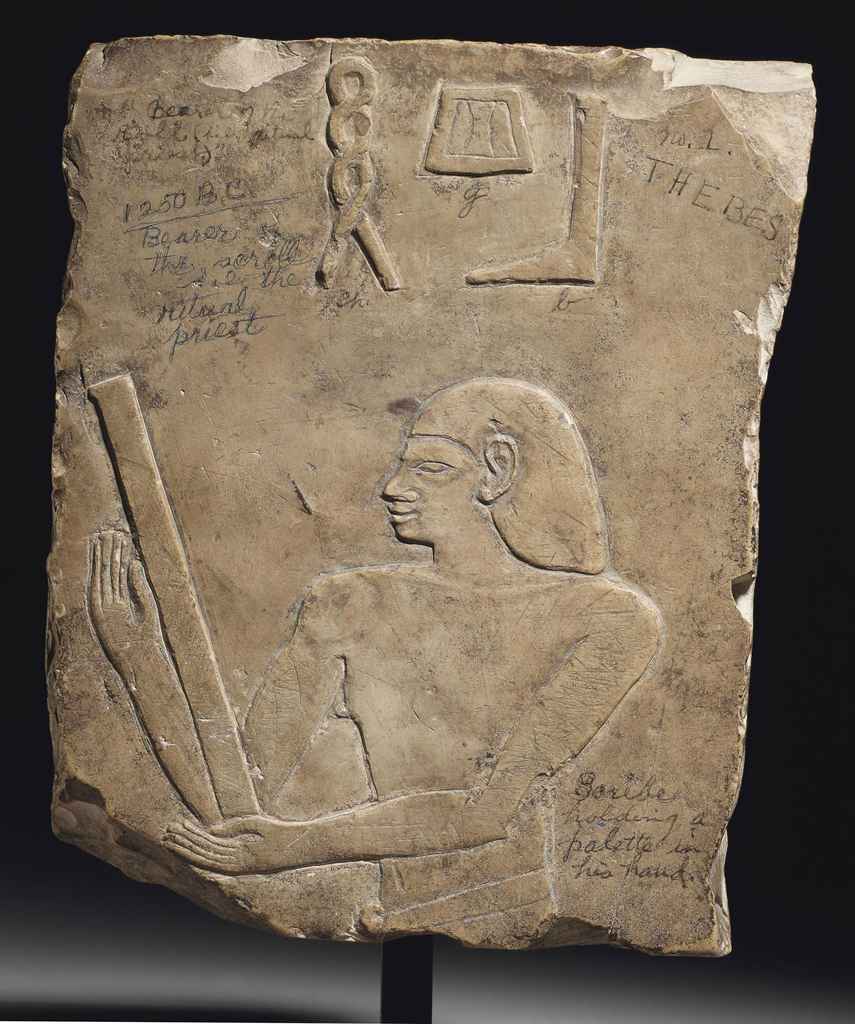 "Bearer of the
(i.e. ritual
priest)"
1250 B.C.
Bearer of
the scroll
i.e. the
ritual
priest
𓎛 𓎼 𓃀
ch. g b
No. 1.
THEBES
Scribe
holding a
palette in
his hand.